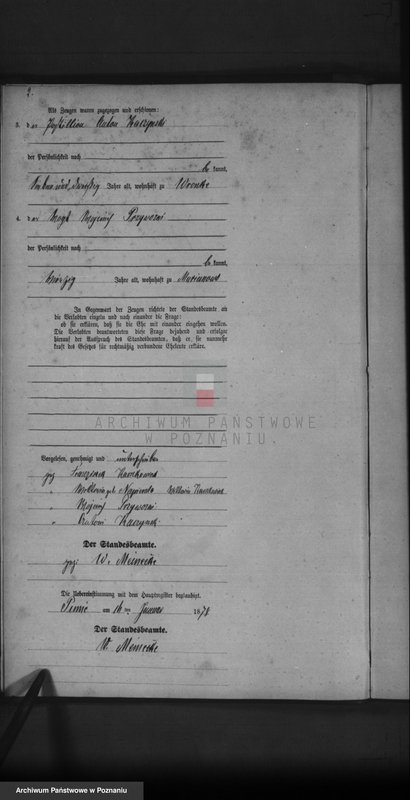 2.
Als Zeugen waren zugezogen und erschienen:
3. der Postillion Anton Kaczynski
der Persönlichkeit nach
be kannt,
und dreißig Jahre alt, wohnhaft zu Wronke
4. der Vogt
der Persönlichkeit nach
be kannt,
vierzig Jahre alt, wohnhaft zu
In Gegenwart der Zeugen richtete der Standesbeamte an
die Verlobten einzeln und nach einander die Frage:
ob sie erklären, daß sie die Ehe mit einander eingehen wollen.
Die Verlobten beantworteten diese Frage bejahend und erfolgte
hierauf der Ausspruch des Standesbeamten, daß er sie nunmehr
kraft des Gesetzes für rechtmäßig verbundene Eheleute erkläre.
ARCHIWUM PAŃSTWOWE
W POZNANIU.
Vorgelesen, genehmigt und unterschrieben
gez.
" Wiktoria geb.
"
" Antoni Kaczynski
Der Standesbeamte.
gez. W. Meinecke
Die Uebereinstimmung mit dem Hauptregister beglaubigt.
Pinne am 14 ten Januar 1878
Der Standesbeamte.
W. Meinecke
Archiwum Państwowe w Poznaniu